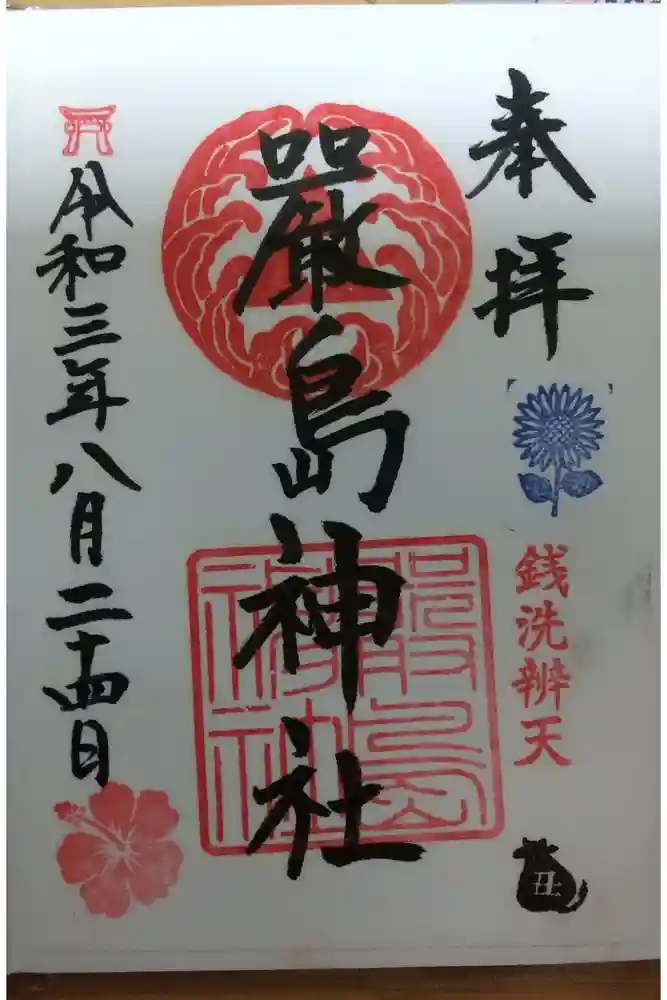 奉拝
銭洗辨天
丑
厳島神社
嚴島神社
令和三年八月二十四日